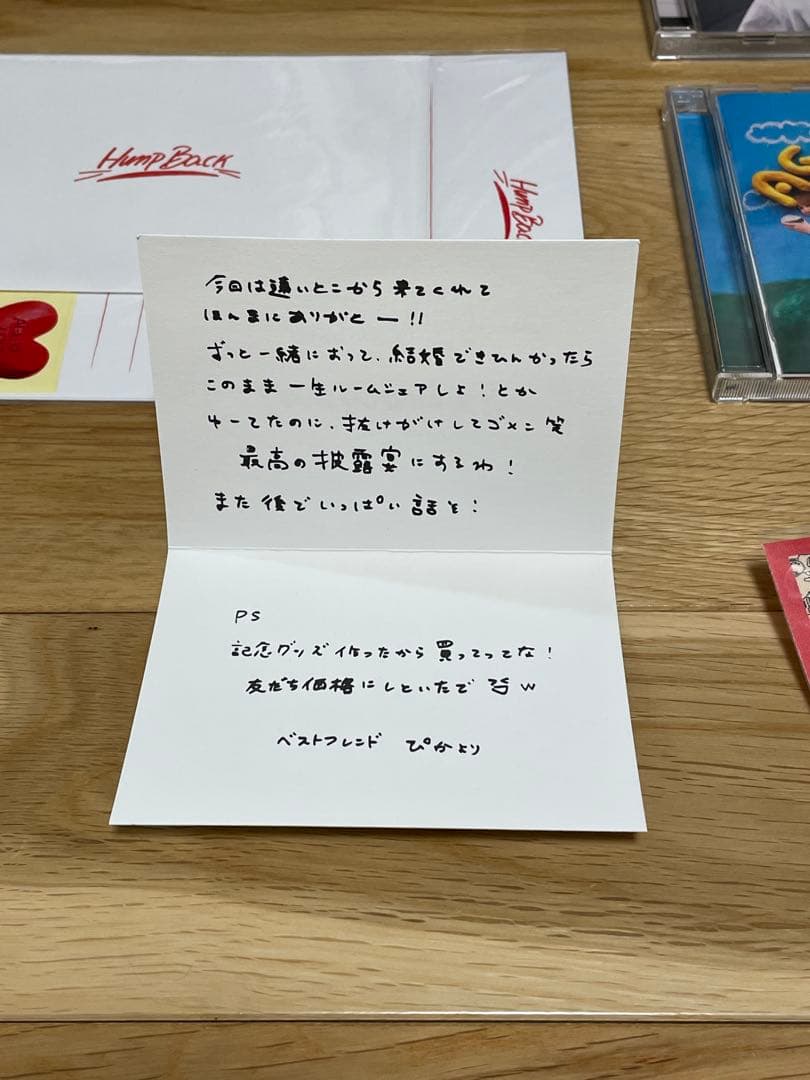 Hump Back
Hump Back
今回は遠いとこから来てくれて
ほんまにありがとー!!
ずっと一緒におって、結婚できひんかったら
このまま一生ルームシェアしよ!とか
ゆーてたのに、抜けがけしてゴメン笑
最高の披露宴にするわ!
また後でいっぱい話そ!
PS
記念グッズ作ったから買ってってな!
友だち価格にしといたで w
ベストフレンド ぴかより